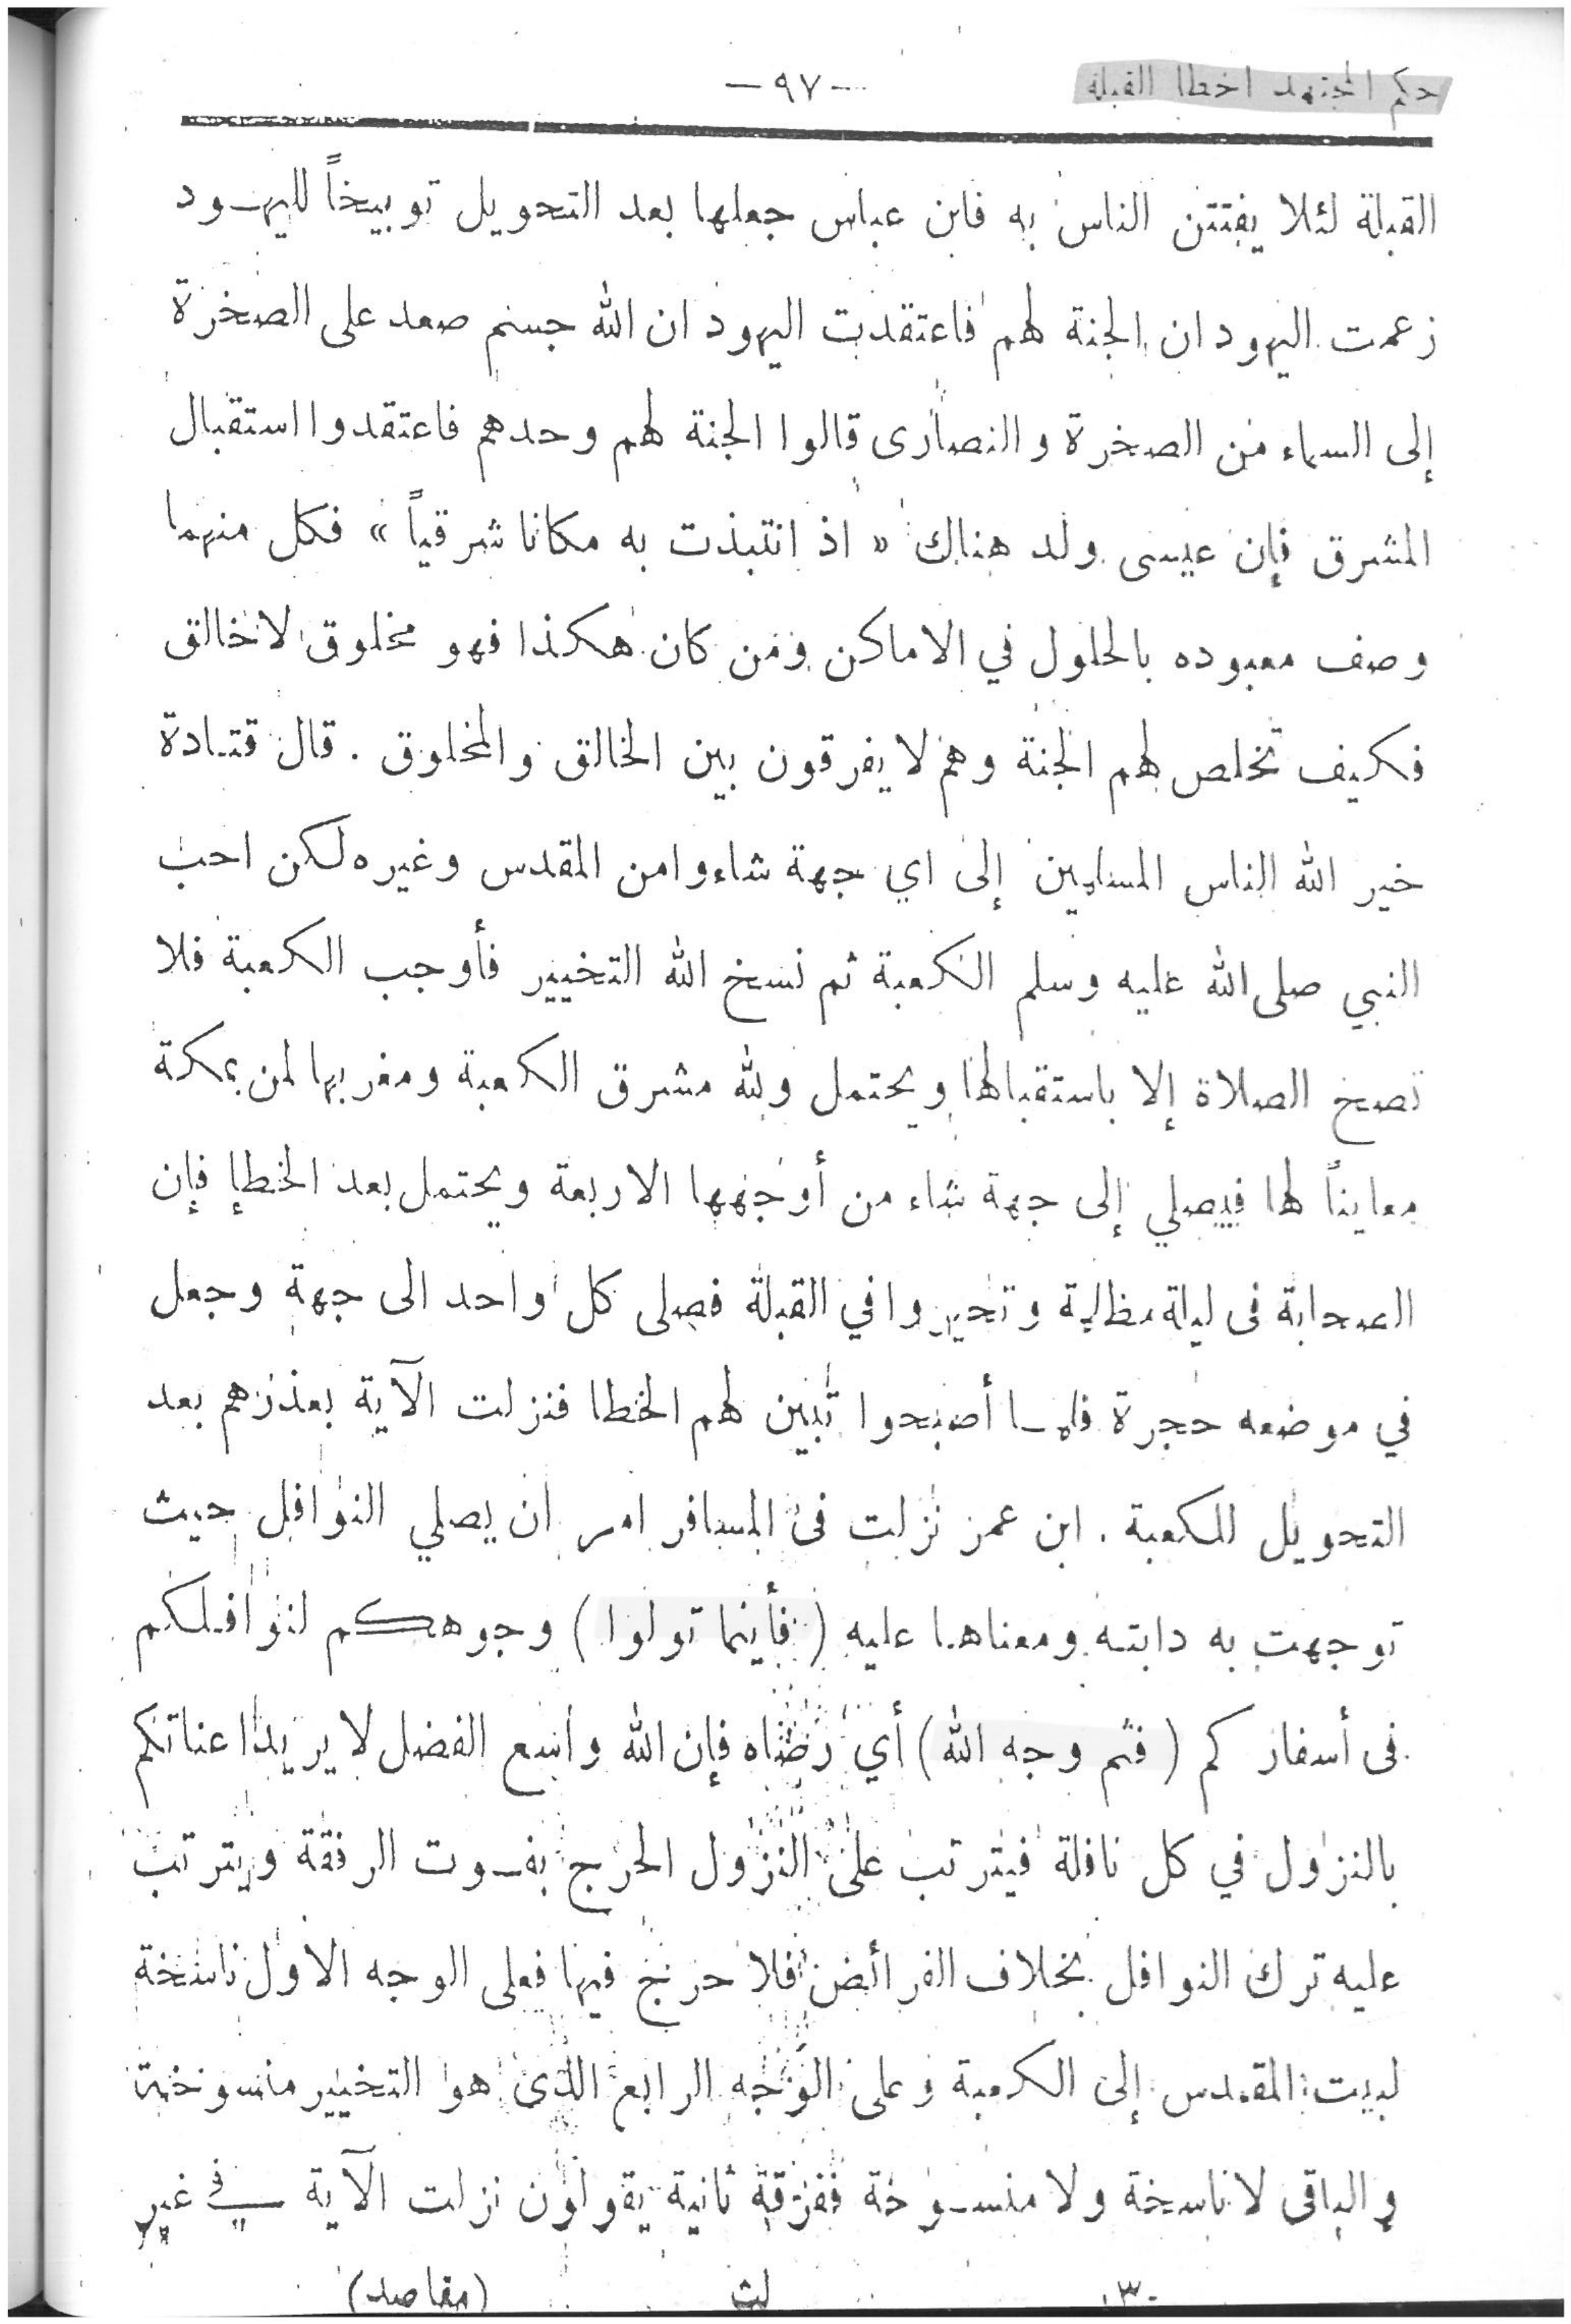 حكم المجتهد اخطا القبلة
— ٩٧ —
القبلة لئلا يفتتن الناس به فابن عباس جعلها بعد التحويل توبيخاً لليهود
زعمت اليهود ان الجنة لهم فاعتقدت اليهود ان الله جسم صعد على الصخرة
إلى السماء من الصخرة والنصارى قالوا الجنة لهم وحدهم فاعتقدوا استقبال
المشرق فإن عيسى ولد هناك « اذ انتبذت به مكانا شرقياً » فكل منهما
وصف معبوده بالحلول في الاماكن ومن كان هكذا فهو مخلوق لا خالق
فكيف تخلص لهم الجنة وهم لا يفرقون بين الخالق والمخلوق . قال قتادة
خير الله الناس المسلمين إلى اي جهة شاءوا من المقدس وغيره لكن احب
النبي صلى الله عليه وسلم الكعبة ثم نسخ الله التخيير فأوجب الكعبة فلا
تصح الصلاة إلا باستقبالها ويحتمل ولله مشرق الكعبة ومغربها لمن بمكة
معايناً لها فيصلي إلى جهة شاء من أوجهها الاربعة ويحتمل بعد الخطإ فإن
الصحابة فى ليلة مظلمة وتحيروا في القبلة فصلى كل واحد الى جهة وجعل
في موضعه حجرة فلما أصبحوا تبين لهم الخطا فنزلت الآية بعذرهم بعد
التحويل للكعبة . ابن عمر نزلت فى المسافر امر ان يصلي النوافل حيث
توجهت به دابته ومعناها عليه ( فأينما تولوا ) وجوهكم لنوافلكم
فى أسفاركم ( فثم وجه الله ) أي رضاه فإن الله واسع الفضل لا يريد اعناتكم
بالنزول في كل نافلة فيترتب على النزول الحرج بفوت الرفقة ويترتب
عليه ترك النوافل بخلاف الفرائض فلا حرج فيها فعلى الوجه الاول ناسخة
لبيت المقدس إلى الكعبة وعلى الوجه الرابع الذى هو التخيير منسوخة
والباقى لا ناسخة ولا منسوخة ففرقة ثانية يقولون نزلت الآية في غير
٣ لث (مقاصد)